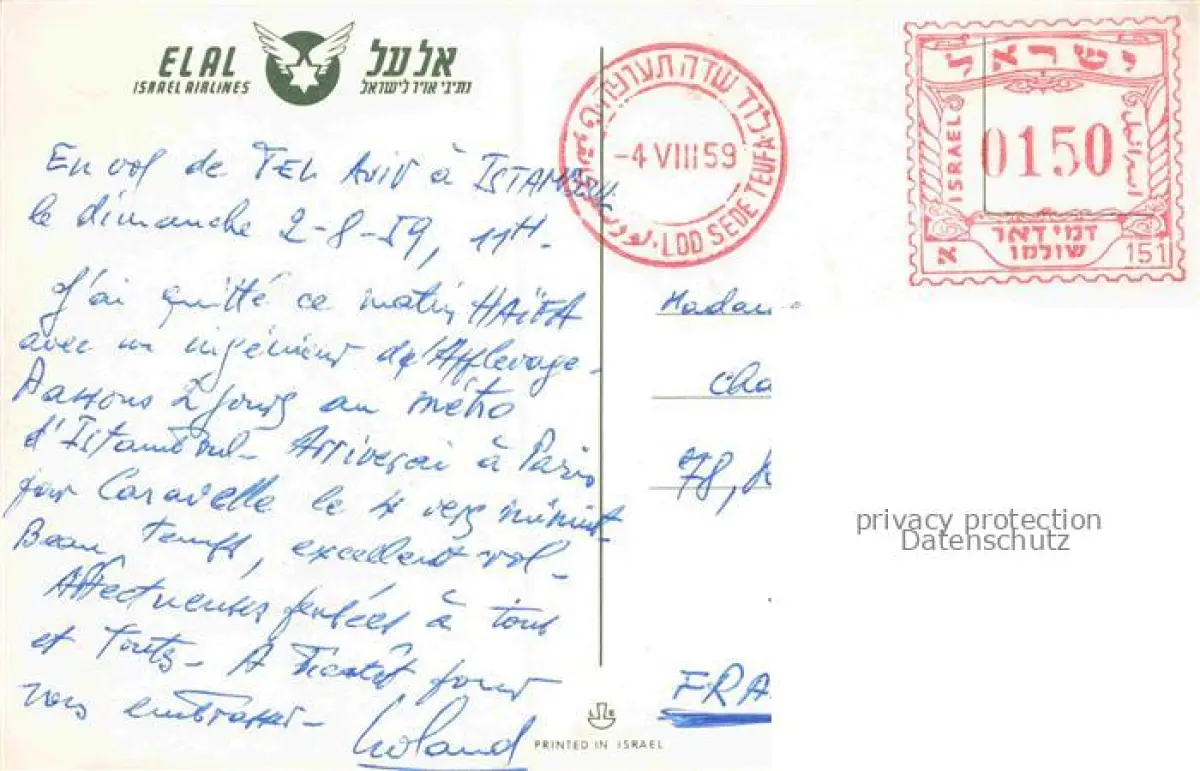 EL AL
ISRAEL AIRLINES
אל על
נתיבי אויר לישראל
En vol de TEL AVIV à ISTAMBUL
le dimanche 2-8-59, 11H.
J'ai quitté ce matin HAÏFA
avec un ingénieur de
Passons 2 jours au métro
d'Istambul - Arriverai à Paris
par Caravelle le 4 vers minuit
Beau temps, excellent vol -
Affectueuses pensées à tous
et toutes - A bientôt pour
vous embrasser -
Roland
לוד שדה תעופה
-4 VIII 59
LOD SEDE TEUFA
ישראל
ISRAEL
0150
اسرائيل
דמי דאר
שולמו
א
151
Madam
Cha
78,
FRA
privacy protection
Datenschutz
PRINTED IN ISRAEL